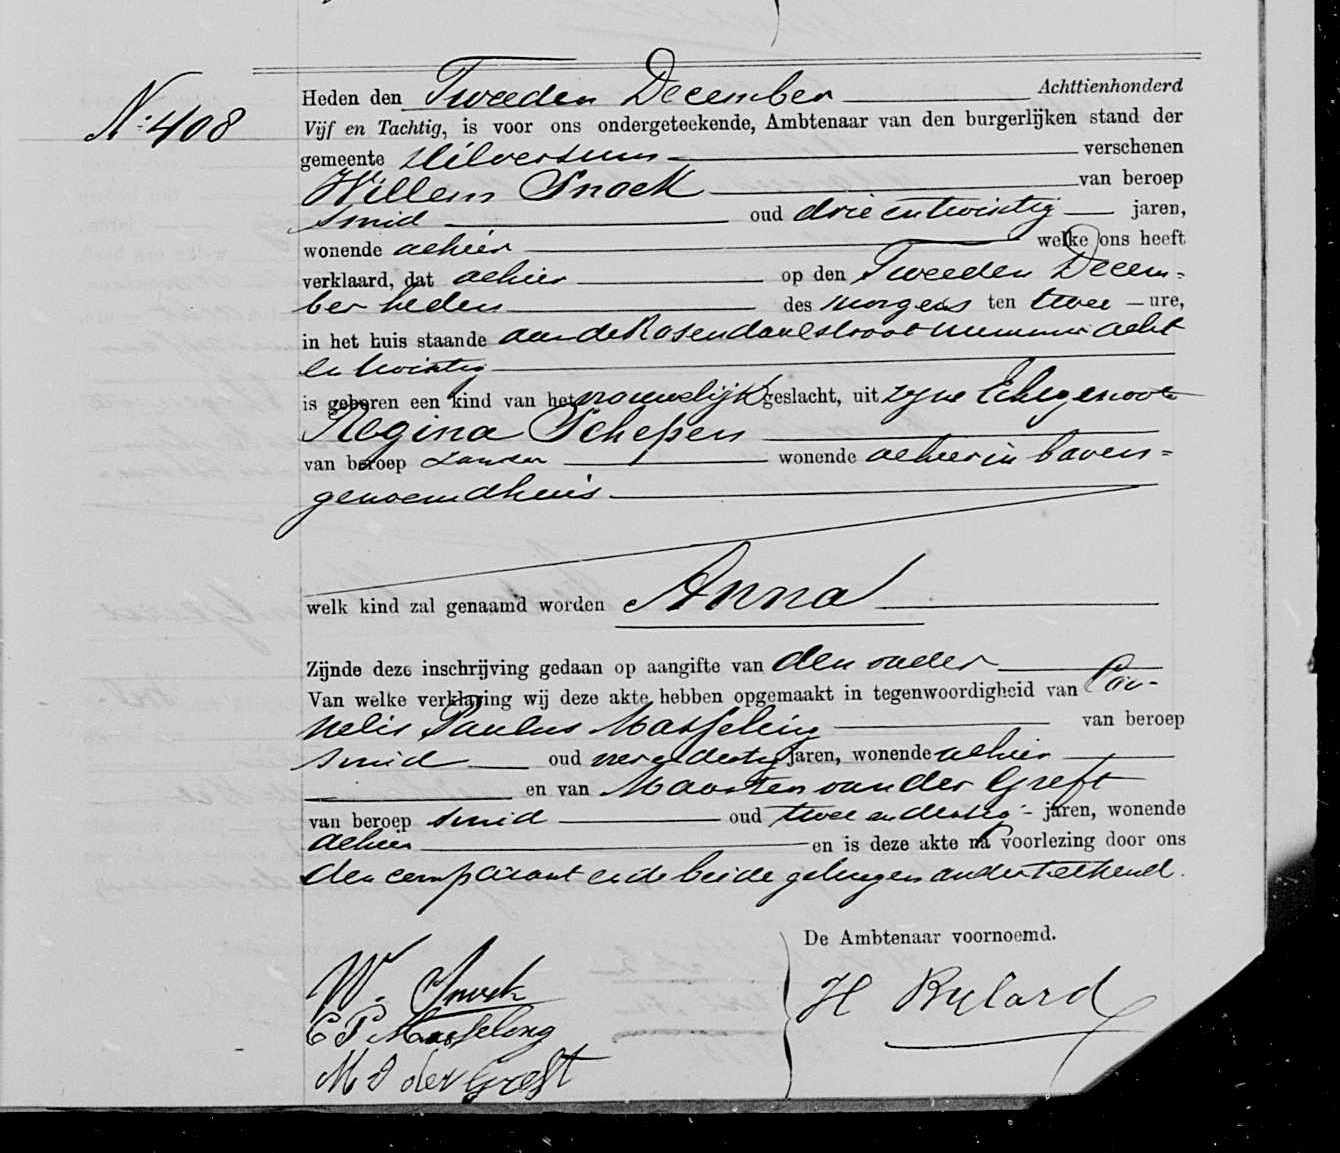 No. 408
Heden den Tweeden December Achttienhonderd
Vijf en Tachtig, is voor ons ondergeteekende, Ambtenaar van den burgerlijken stand der
gemeente Hilversum verschenen
Willem Snoek van beroep
smid oud drie en twintig jaren,
wonende alhier welke ons heeft
verklaard, dat alhier op den Tweeden Decem-
ber heden des morgens ten twee ure,
in het huis staande aan de Rosendaalstraat nummer acht
en twintig
is geboren een kind van het vrouwelijk geslacht, uit zijne Echtgenoote
Regina Schepen
van beroep zonder wonende alhier in boven=
genoemd huis
welk kind zal genaamd worden Anna
Zijnde deze inschrijving gedaan op aangifte van den vader
Van welke verklaring wij deze akte hebben opgemaakt in tegenwoordigheid van Cor-
nelis Paulus Masseling van beroep
smid oud vier en dertig jaren, wonende alhier
en van Maarten van der Greft
van beroep smid oud twee en dertig jaren, wonende
alhier en is deze akte na voorlezing door ons
den comparant en de beide getuigen onderteekend.
De Ambtenaar voornoemd.
W. Snoek
H Rylard
C P Masseling
M v der Greft